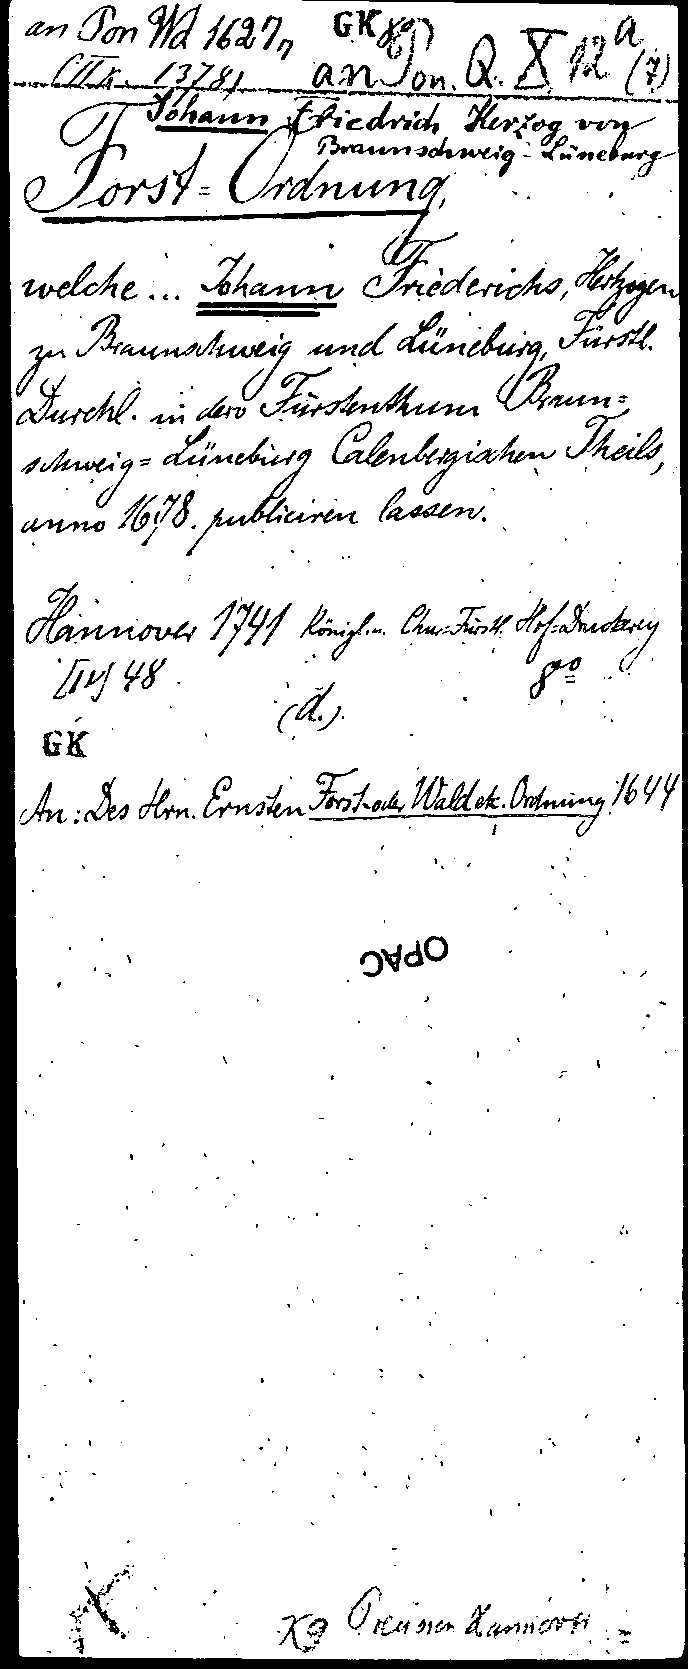 an Pon Wd 1627, GK 8°
(II k. 1378) an Pon. Q. X 12 a (7)
Johann Friedrich, Herzog von
Braunschweig-Lüneburg
Forst=Ordnung,
welche ... Johann Friederichs, Hertzogen
zu Braunschweig und Lüneburg, Fürstl.
Durchl. in dero Fürstenthum Braun=
schweig=Lüneburg Calenbergischen Theils,
anno 1678. publiciren lassen.
Hannover 1741 Königl. u. Chur=Fürstl. Hof=Druckerey
[IV] 48 8°
(d.).
GK
An: Des Hrn. Ernsten Forst- oder Wald etc. Ordnung 1644
OPAC
K9 Preussen Hannover